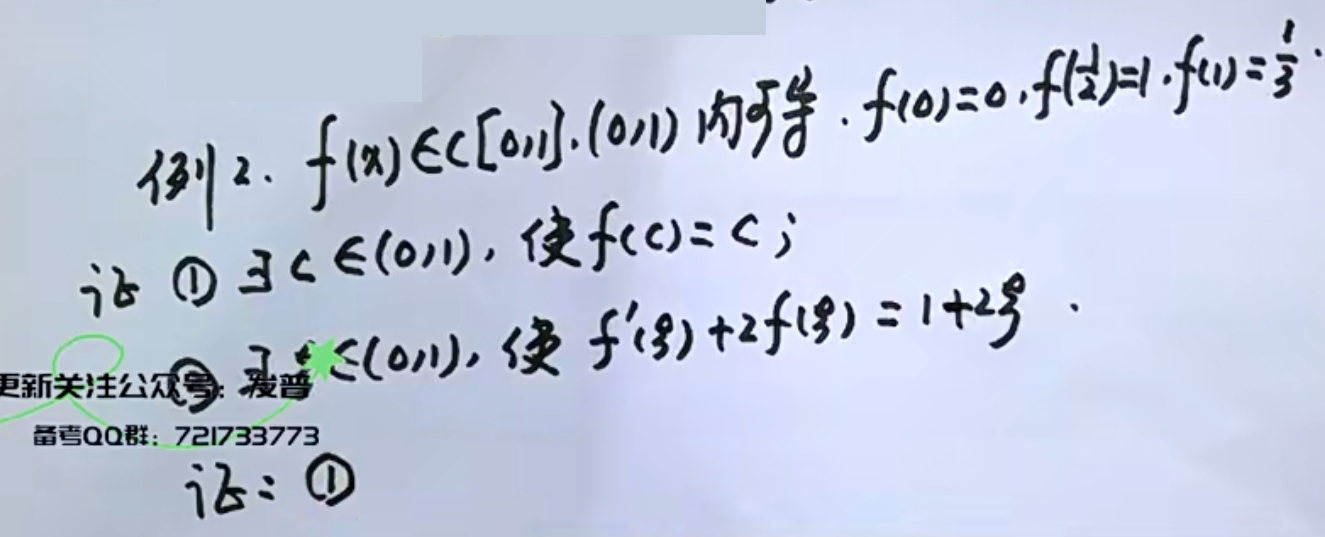 例2. f(x)∈C[0,1].(0,1)内可导. f(0)=0, f(1/2)=1. f(1)=1/3.
证 ① ∃ c ∈(0,1), 使 f(c)=c;
② ∃ ∈(0,1), 使 f'(ξ)+2f(ξ)=1+2ξ.
更新关注公众号：发普
备考QQ群：721733773
证: ①